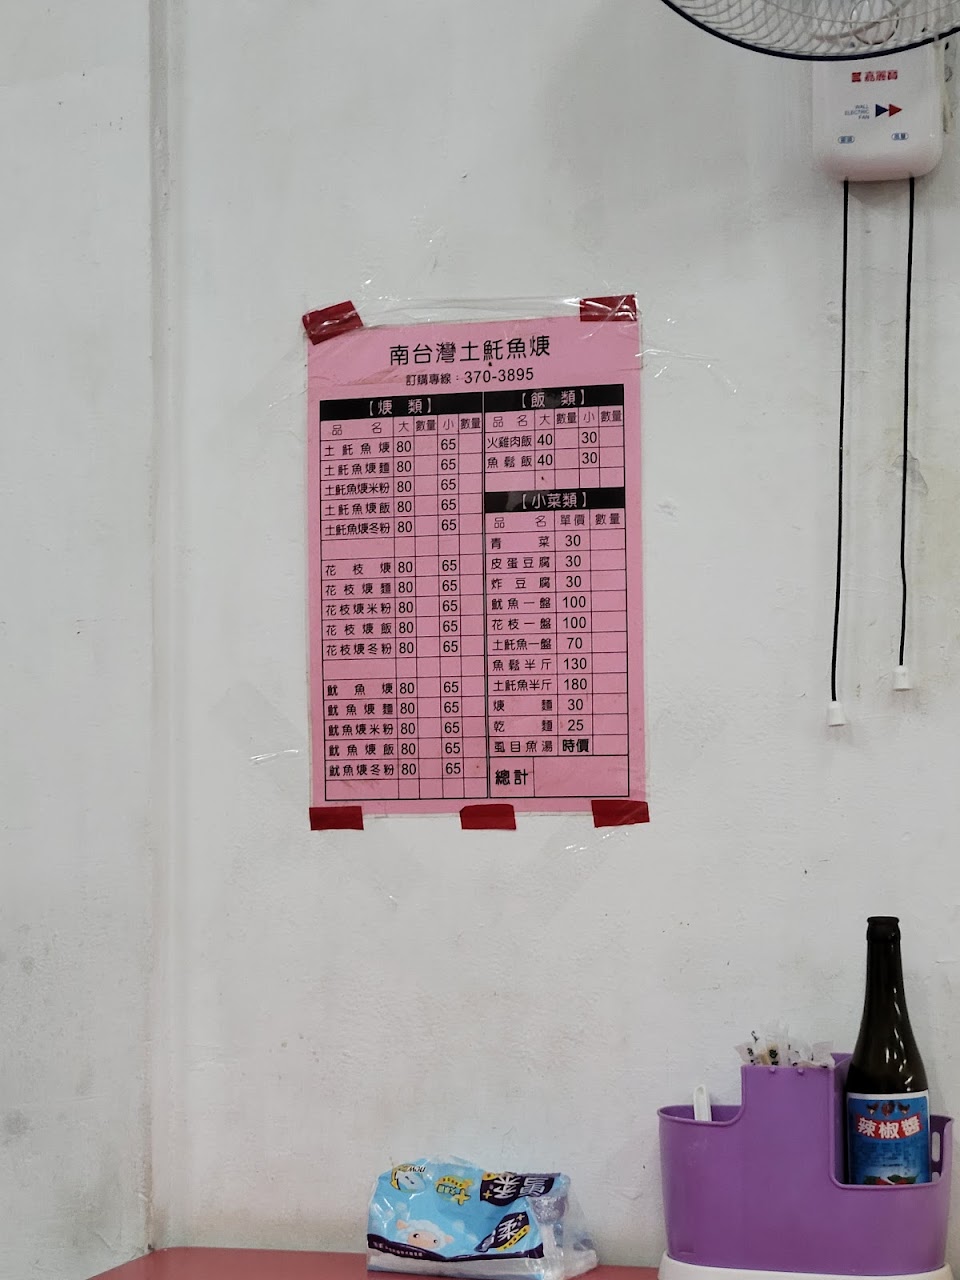 嘉麗寶
WALL
ELECTRIC
FAN
南台灣土魠魚焿
訂購專線：370-3895
【焿 類】
品名 大 數量 小 數量
土魠魚焿 80 65
土魠魚焿麵 80 65
土魠魚焿米粉 80 65
土魠魚焿飯 80 65
土魠魚焿冬粉 80 65
花枝焿 80 65
花枝焿麵 80 65
花枝焿米粉 80 65
花枝焿飯 80 65
花枝焿冬粉 80 65
魷魚焿 80 65
魷魚焿麵 80 65
魷魚焿米粉 80 65
魷魚焿飯 80 65
魷魚焿冬粉 80 65
【飯 類】
品名 大 數量 小 數量
火雞肉飯 40 30
魚鬆飯 40 30
【小菜類】
品名 單價 數量
青菜 30
皮蛋豆腐 30
炸豆腐 30
魷魚一盤 100
花枝一盤 100
土魠魚一盤 70
魚鬆半斤 130
土魠魚半斤 180
焿麵 30
乾麵 25
虱目魚湯 時價
總計
辣椒醬
new
柔
柔